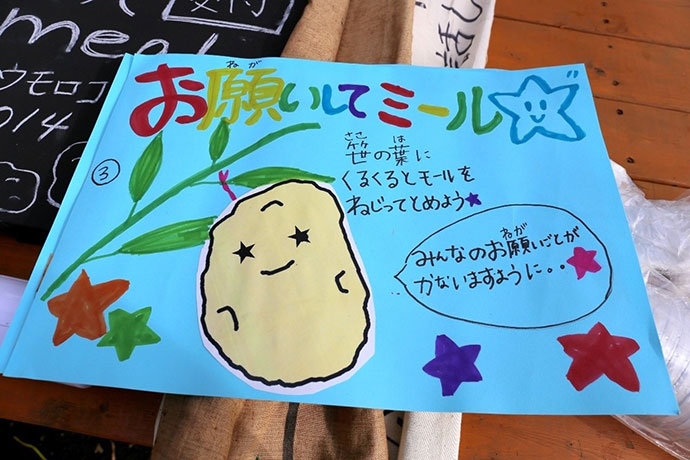 meal
ウモロコ
014
お願いしてミール
ねが
③
笹の葉に
ささ は
くるくるとモールを
ねじってとめよう
みんなのお願いごとが
ねが
かないますように。。